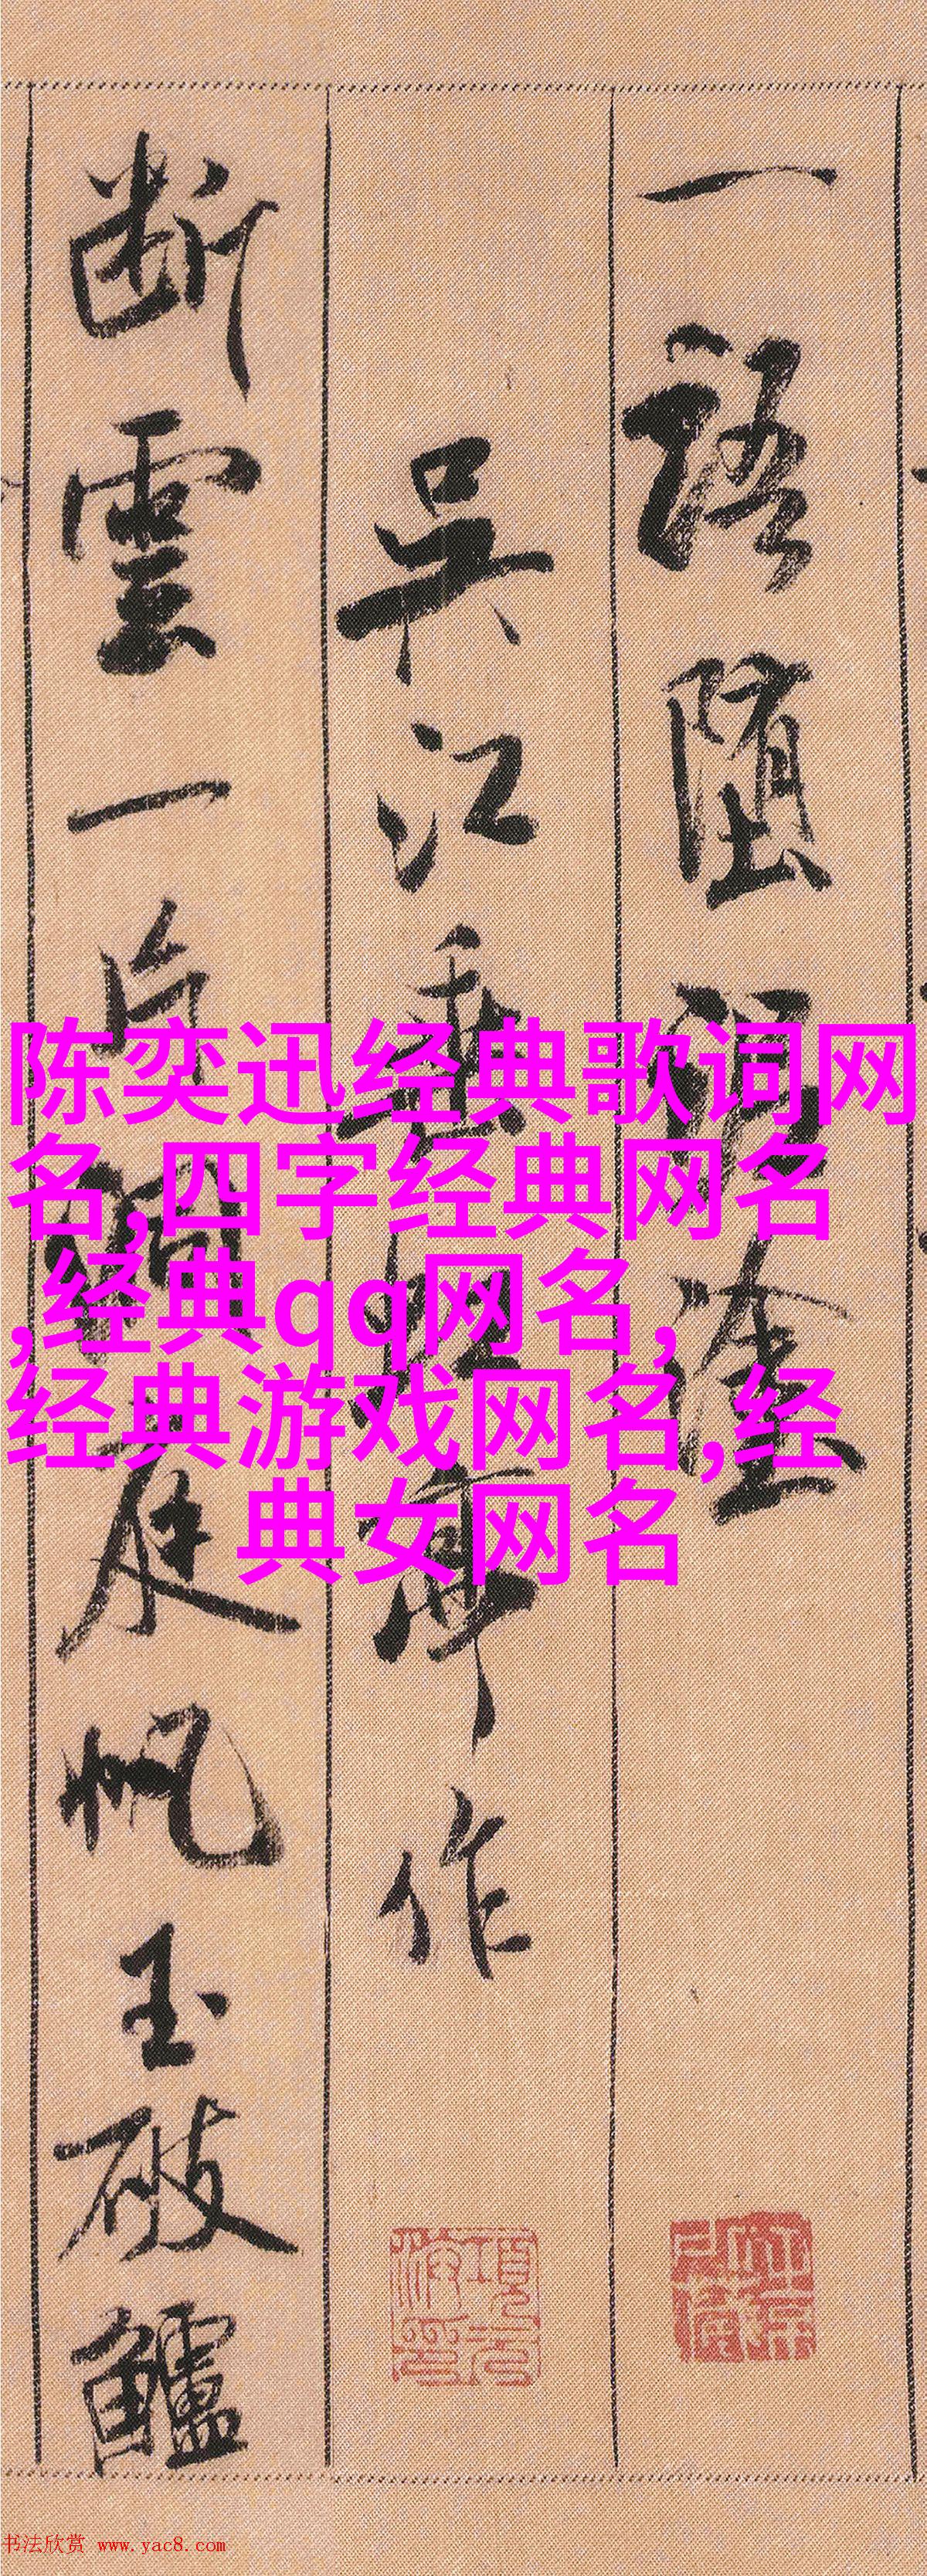 一語墮泥塗
吳江垂虹亭作
斷雲一片洞庭帆玉破鱸
陈奕迅经典歌词网
名,四字经典网名
,经典qq网名,
经典游戏网名,经
典女网名
书法欣赏 www.yac8.com